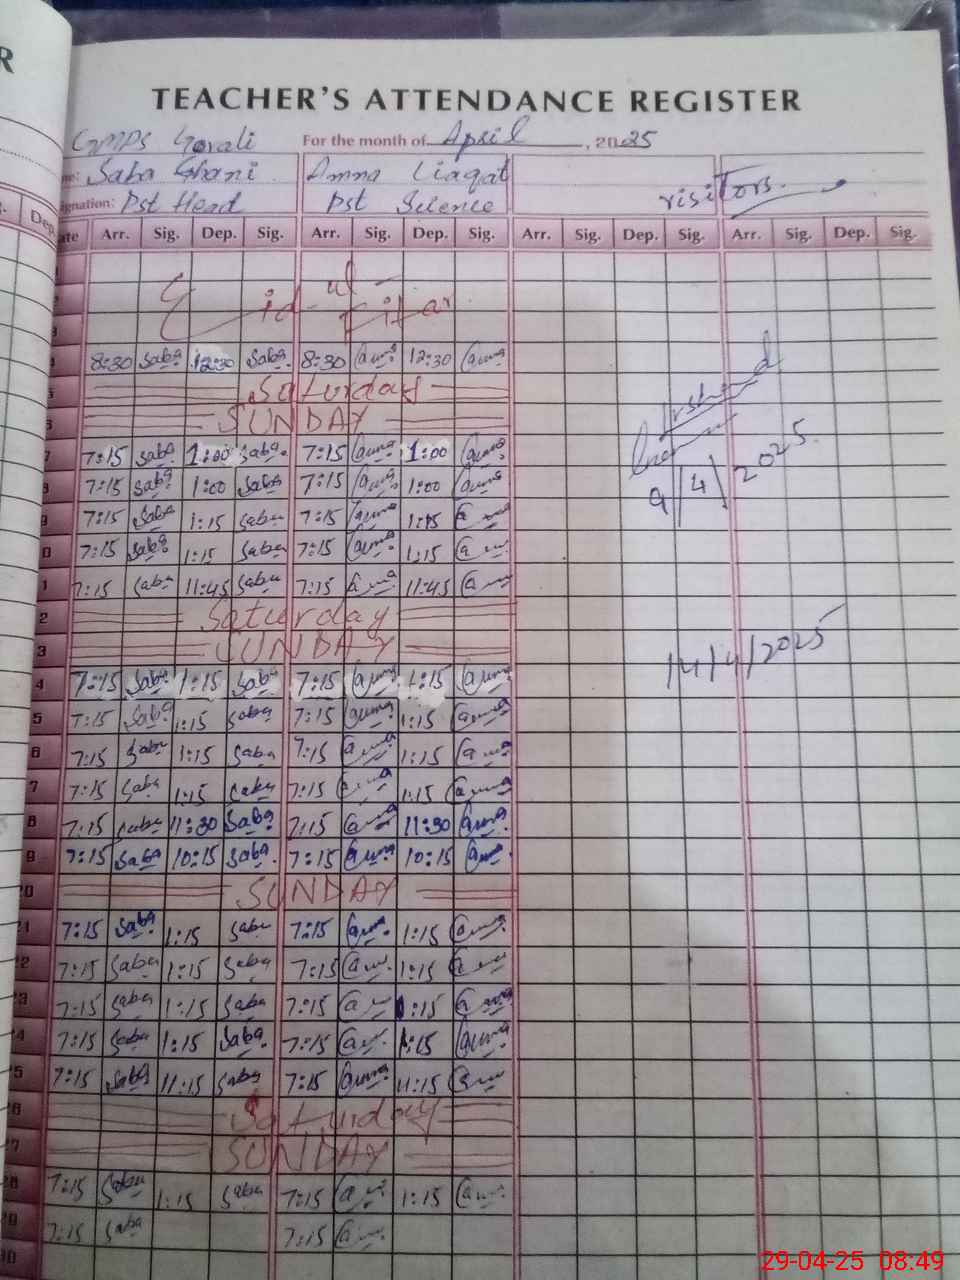 R
TEACHER'S ATTENDANCE REGISTER
GMPS Gorali For the month of April, 2025
me: Saba Ghani Amna Liaqat visiTors.
signation: Pst Head Pst Science
ate Arr. Sig. Dep. Sig. Arr. Sig. Dep. Sig. Arr. Sig. Dep. Sig. Arr. Sig. Dep. Sig.
Eid ul Fitar
8:30 Saba 12:30 Saba 8:30 12:30
Saturday
SUNDAY
7:15 Saba 1:00 Saba 7:15 1:00
7:15 Saba 1:00 Saba 7:15 1:00
9/4/2025
7:15 Saba 1:15 Saba 7:15 1:15
7:15 Saba 1:15 Saba 7:15 1:15
7:15 Saba 11:45 Saba 7:15 11:45
2 Saturday
3 SUNDAY
14/4/2025
4 7:15 Saba 1:15 Saba 7:15 1:15
5 7:15 Saba 1:15 Saba 7:15 1:15
6 7:15 Saba 1:15 Saba 7:15 1:15
7 7:15 Saba 1:15 Saba 7:15 1:15
8 7:15 Saba 11:30 Saba 7:15 11:30
9 7:15 Saba 10:15 Saba 7:15 10:15
20 SUNDAY
21 7:15 Saba 1:15 Saba 7:15 1:15
22 7:15 Saba 1:15 Saba 7:15 1:15
23 7:15 Saba 1:15 Saba 7:15 1:15
24 7:15 Saba 1:15 Saba 7:15 1:15
25 7:15 Saba 11:15 Saba 7:15 11:15
26 Saturday
27 SUNDAY
28 7:15 Saba 1:15 Saba 7:15 1:15
29 7:15 Saba 7:15
30
29-04-25 08:49